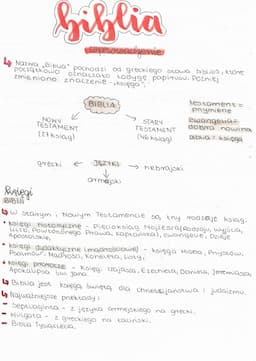 biblia
wprowadzenie
Nazwa „Biblia” pochodzi od greckiego słowa biblos, które
początkowo oznaczało łodygę papirusu. Później
zmieniono znaczenie - „księga”.
BIBLIA
testament =
przymierze
NOWY
TESTAMENT
(27 ksiąg)
STARY
TESTAMENT
(46 ksiąg)
Ewangelia=
dobra nowina
biblia = księga
grecki ← JĘZYKI → hebrajski
aramejski
Księgi
BIBLII
W Starym i Nowym Testamencie są trzy rodzaje ksiąg:
• księgi historyczne - Pięcioksiąg Mojżesza (Rodzaju, Wyjścia,
Liczb, Powtórzonego Prawa, Kapłańska), ewangelie, Dzieje
Apostolskie,
• księgi dydaktyczne (mądrościowe) - księga Hioba, Przysłów,
Psalmów, Mądrości, Koheleta, Listy;
• księgi prorockie - księgi Izajasza, Ezechiela, Daniela, Jeremiasza,
Apokalipsa św. Jana
Biblia jest księgą świętą dla chrześcijaństwa i judaizmu.
Najważniejsze przekłady:
- Septuaginta - z języka aramejskiego na grecki.
- Wulgata - z greckiego na łaciński.
- Biblia Tysiąclecia.